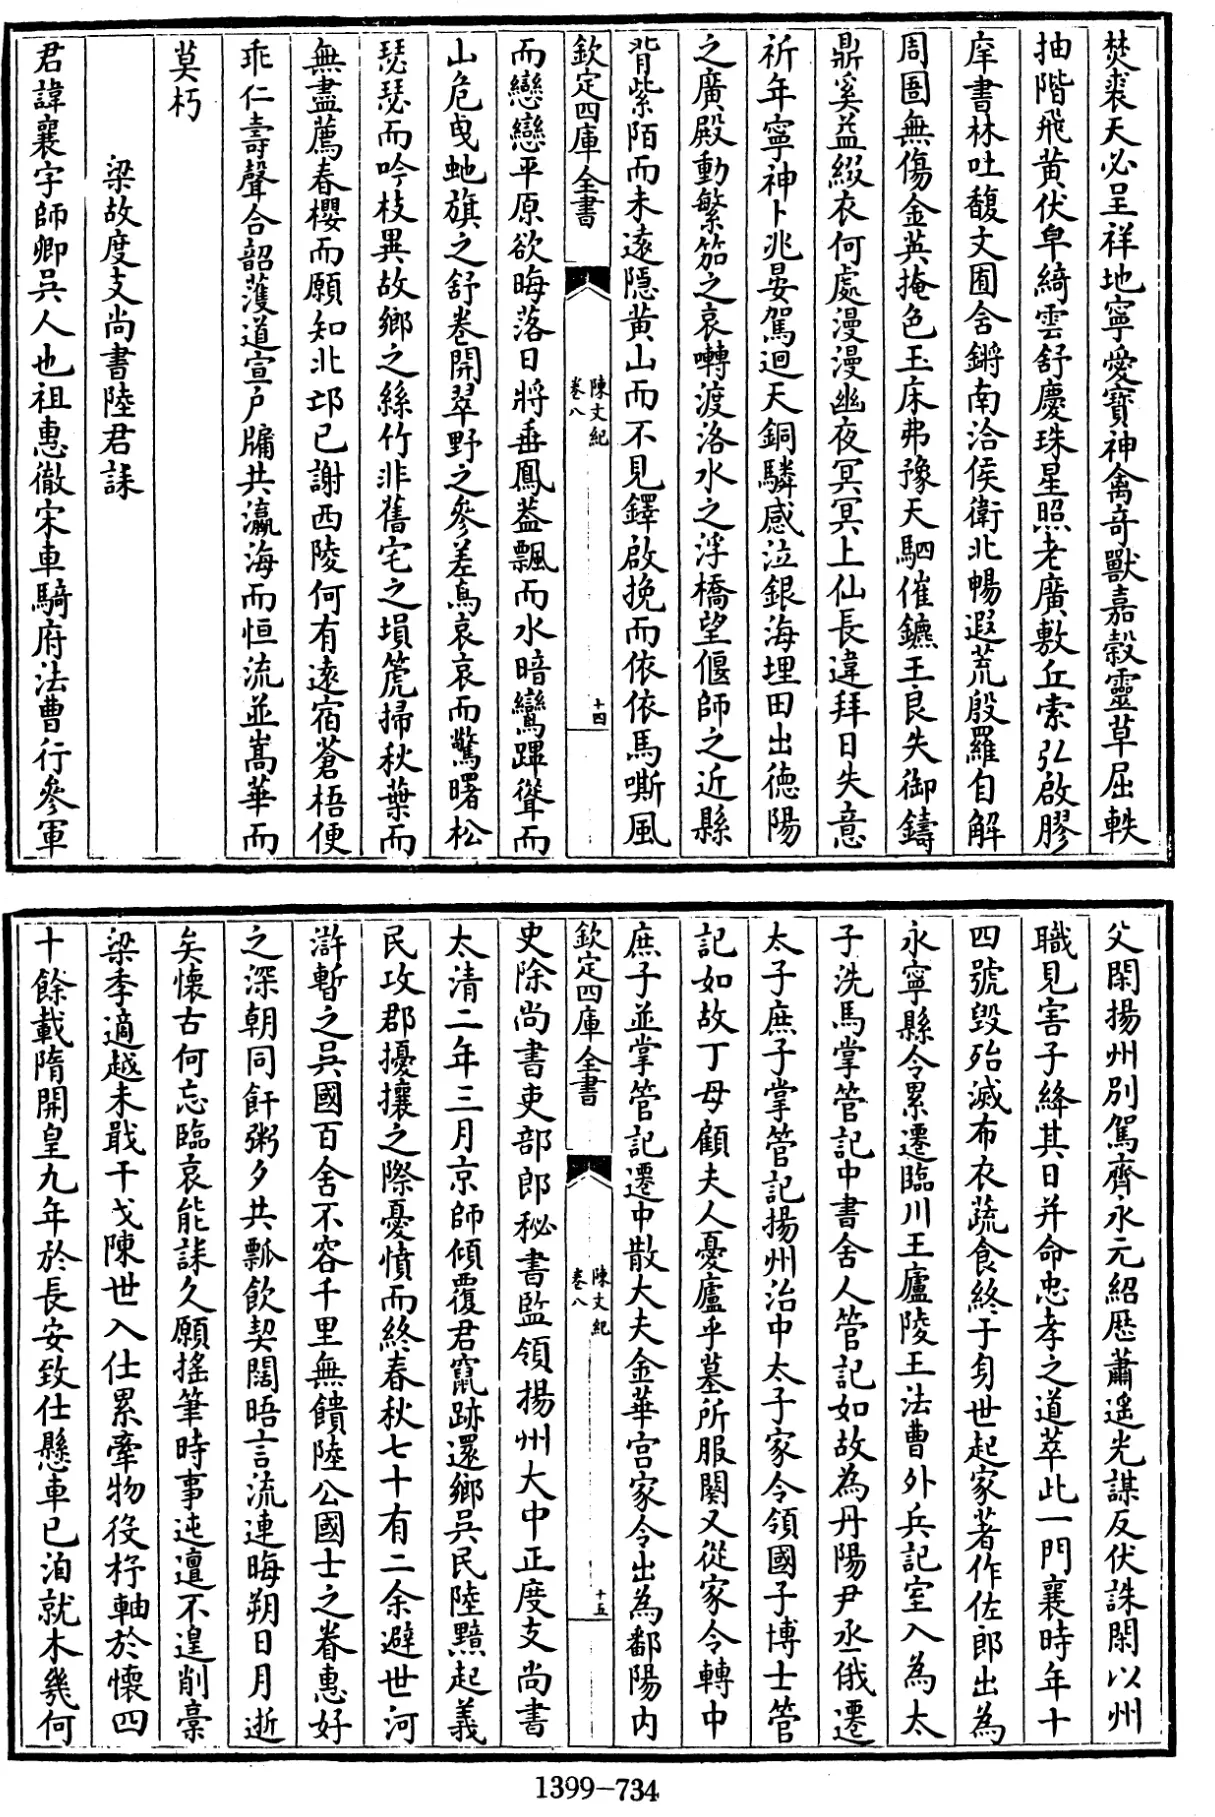 焚裘天必呈祥地寧愛寶神禽奇獸嘉穀靈草屈軼
抽階飛黄伏皁綺雲舒慶珠星照老廣敷丘索弘啟膠
庠書林吐馥文囿含鏘南洽侯衛北暢遐荒殷羅自解
周圄無傷金英掩色玉床弗豫天駟催鑣王良失御鑄
鼎奚益綴衣何處漫漫幽夜冥冥上仙長違拜日失意
祈年寧神卜兆晏駕迴天銅驎感泣銀海埋田出德陽
之廣殿動繁笳之哀囀渡洛水之浮橋望偃師之近縣
背紫陌而未遠隱黄山而不見鐸啟挽而依依馬嘶風
欽定四庫全書
陳文紀
卷八
十四
而戀戀平原欲晦落日將垂鳳蓋飄而水暗鸞蹕聳而
山危曳虵旗之舒卷開翠野之參差鳥哀哀而驚曙松
瑟瑟而吟枝異故鄉之絲竹非舊宅之塤箎掃秋葉而
無盡薦春櫻而願知北邙已謝西陵何有遠宿蒼梧便
乖仁壽聲合韶濩道宣户牖共瀛海而恒流並嵩華而
莫朽
梁故度支尚書陸君誄
君諱襄字師卿吳人也祖惠徹宋車騎府法曹行參軍
父閑揚州別駕齊永元紹厯蕭遥光謀反伏誅閑以州
職見害子絳其日并命忠孝之道萃此一門襄時年十
四號毀殆滅布衣蔬食終于身世起家著作佐郎出為
永寧縣令累遷臨川王廬陵王法曹外兵記室入為太
子洗馬掌管記中書舍人管記如故為丹陽尹丞俄遷
太子庶子掌管記揚州治中太子家令領國子博士管
記如故丁母顧夫人憂廬乎墓所服闋又從家令轉中
庶子並掌管記遷中散大夫金華宫家令出為鄱陽内
欽定四庫全書
陳文紀
卷八
十五
史除尚書吏部郎秘書監領揚州大中正度支尚書
太清二年三月京師傾覆君竄跡還鄉吳民陸黯起義
民攻郡擾攘之際憂憤而終春秋七十有二余避世河
滸暫之吳國百舍不容千里無饋陸公國士之眷惠好
之深朝同飦粥夕共瓢飲契闊晤言流連晦朔日月逝
矣懷古何忘臨哀能誄久願搖筆時事迍邅不遑削稾
梁季適越未戢干戈陳世入仕累牽物役杼軸於懷四
十餘載隋開皇九年於長安致仕懸車已洎就木幾何
1399-734